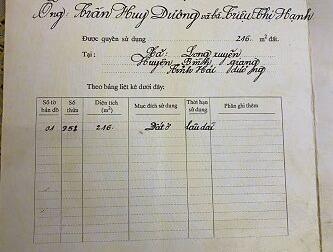 Ông: Trần Huy Dương và bà Triệu Thị Hạnh
Được quyền sử dụng 216. m² đất.
Tại : Xã: Long xuyên
Huyện Bình giang
Tỉnh Hải dương
Theo bảng liệt kê dưới đây:
Số tờ bản đồ Số thửa Diện tích (m²) Mục đích sử dụng Thời hạn sử dụng Phần ghi thêm
01 951 216. Đất ở lâu dài